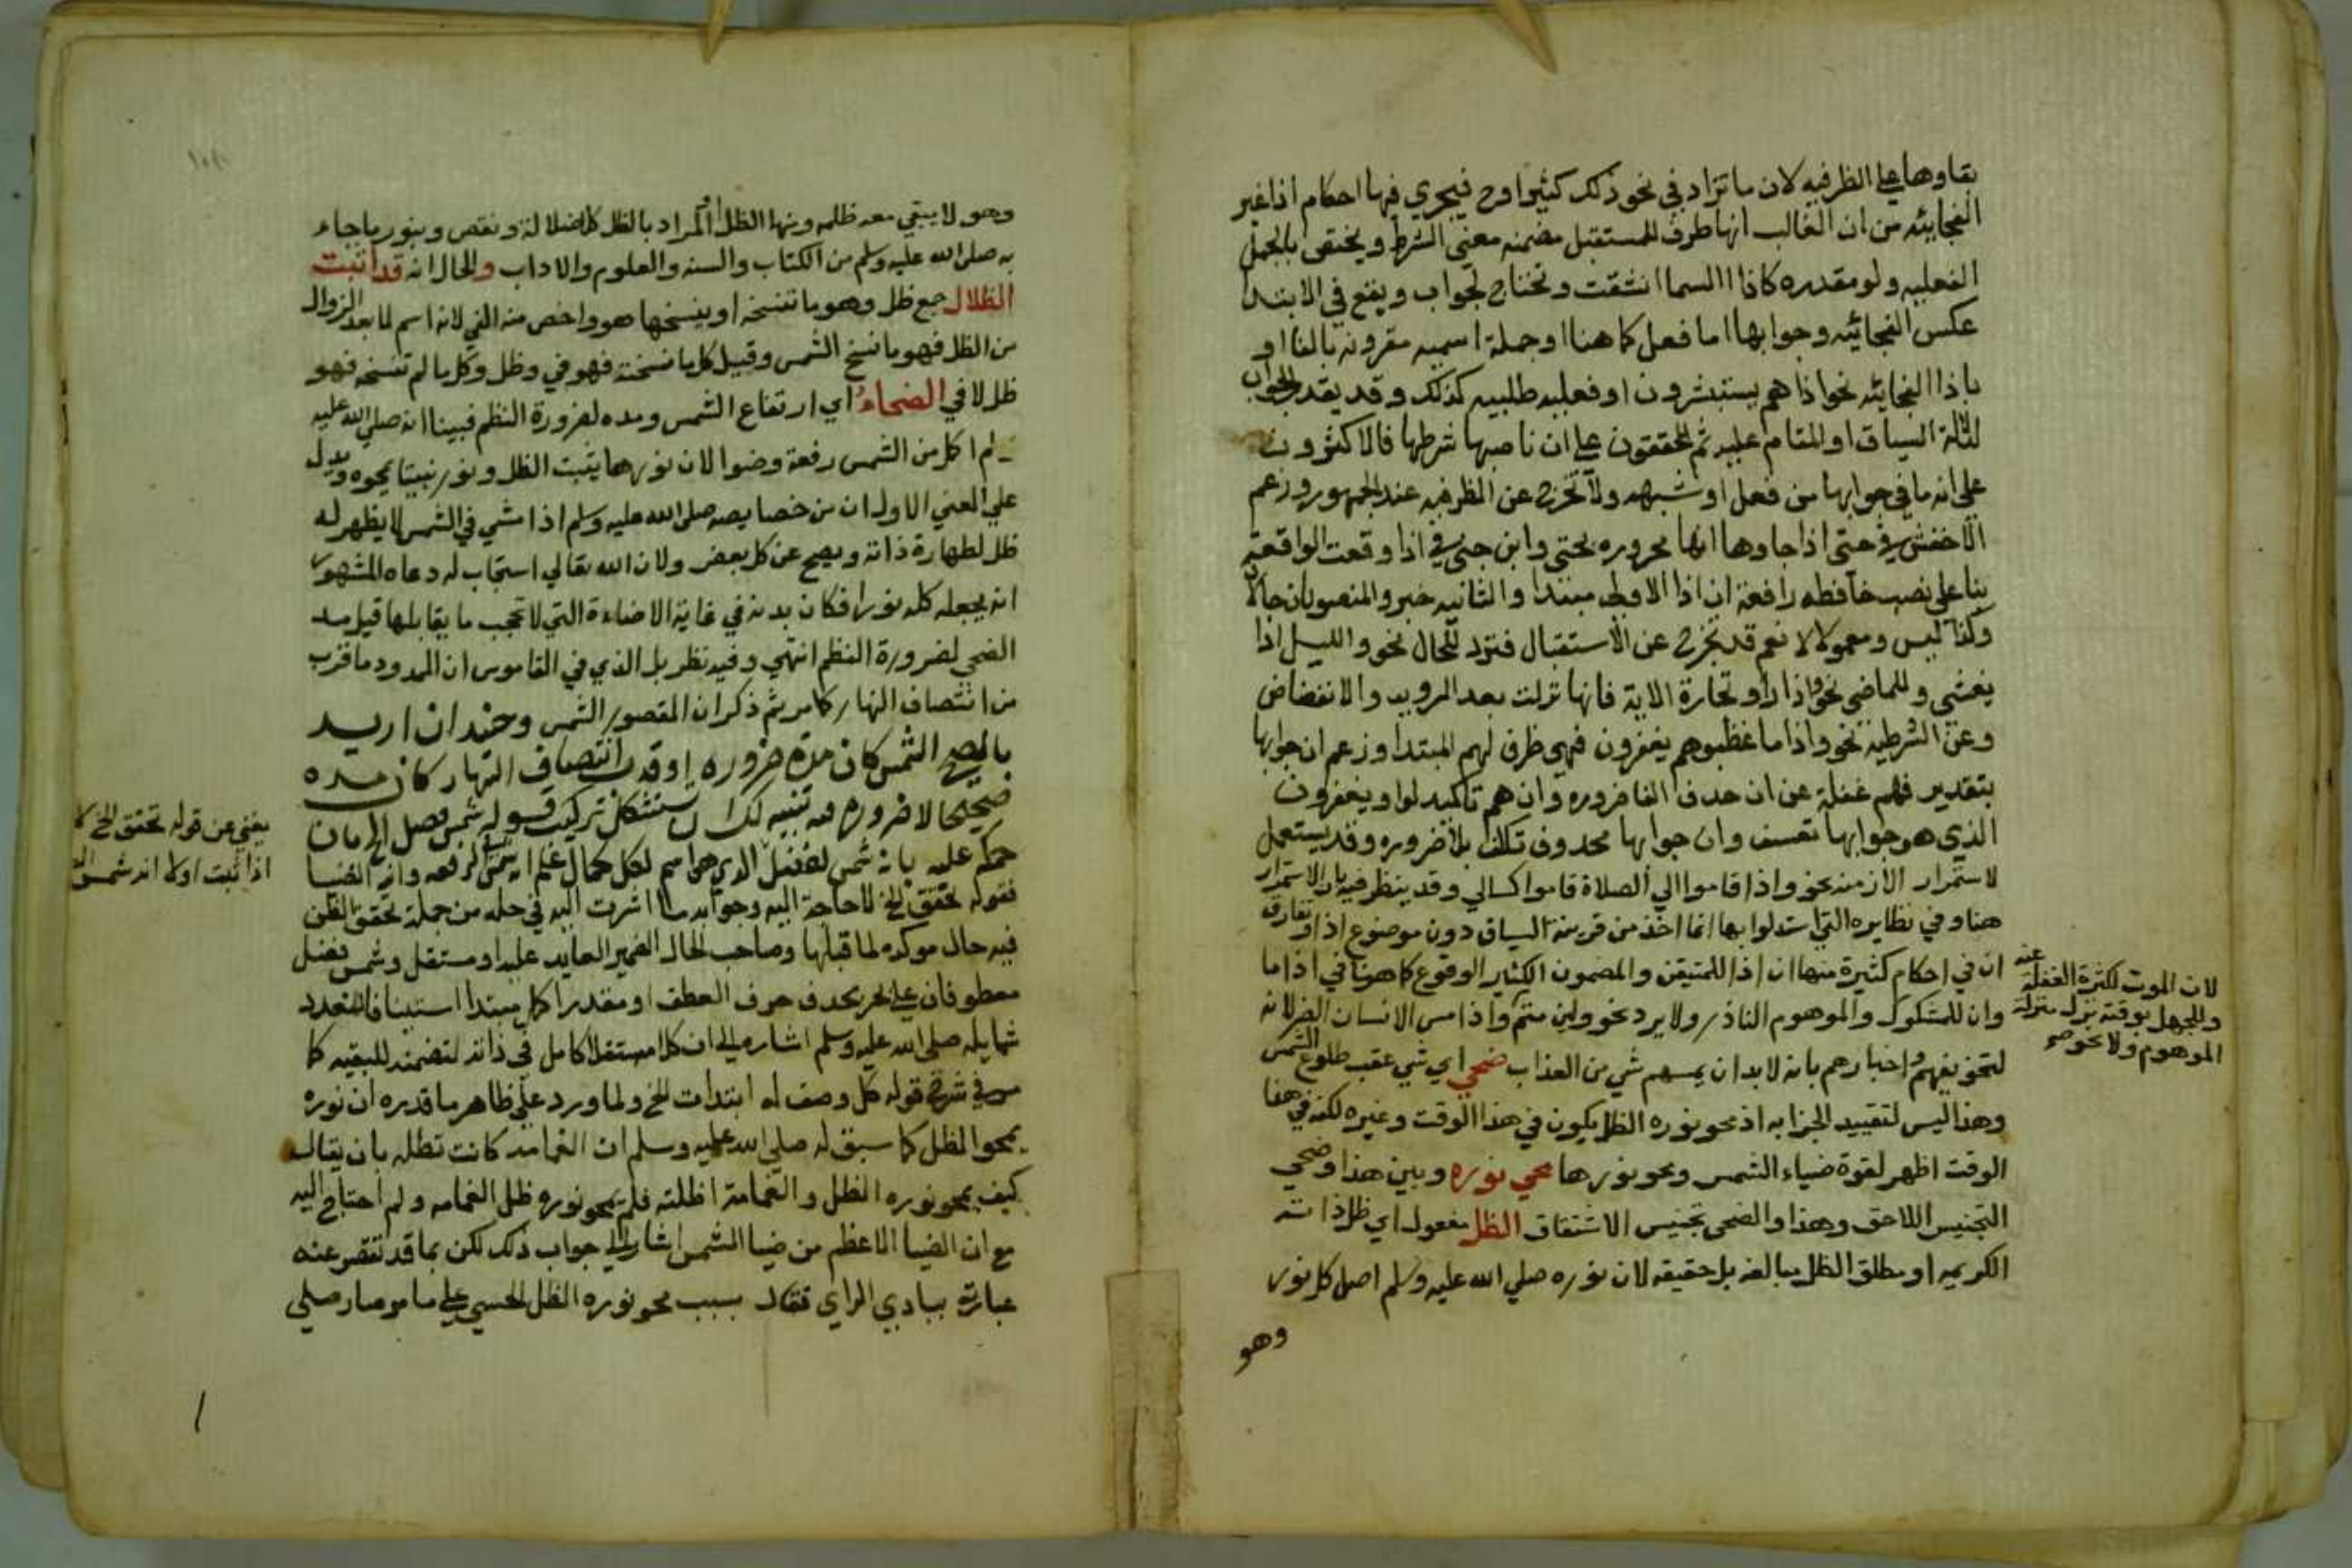 بقاوها على الظرفيه لان ما تزاد في نحو ذلك كثيرا وح فيجري فيها احكام اذا غير
الفجائيه من ان الغالب انها ظرف للمستقبل مضمنه معنى الشرط ويختص بالجمل
الفعليه ولو مقدره كاذا السما انشقت وتحتاج لجواب ويقع في الابتدا
عكس الفجائيه وجوابها اما فعل كما هنا او جملة اسميه مقرونه بالفا او
باذا الفجائيه نحو اذا هم يستبشرون او فعليه طلبيه كذلك وقد يقدر الجواب
لدلالة السياق او المقام عليه ثم المحققون على ان ناصبها شرطها فالاكثرون
على انه ما في جوابها من فعل او شبهه ولا تخرج عن الظرفيه عند الجمهور وزعم
الاخفش في حتى اذا جاوها انها مجروره بحتى وابن جني في اذا وقعت الواقعة
بنا على نصب خافضه رافعة ان اذا الاولى مبتدا والثانيه خبر والمنصوبان حالان
وكذا ليس ومعمولاها نعم قد تخرج عن الاستقبال فترد للحال نحو والليل اذا
يغشى وللماضي نحو واذا راوا تجارة الاية فانها نزلت بعد الرويه والانفضاض
وعن الشرطيه نحو واذا ما غضبوا هم يغفرون فهي ظرف لهم المبتدا وزعم ان جوابها
بتقدير فهم غفلة عن ان حدف الفا ضروره وان هم تاكيد لواو يغفرون
الذي هو جوابها تعسف وان جوابها محدوف تكلف بلا ضروره وقد يستعمل
لاستمرار الازمنه نحو واذا قاموا الي الصلاة قاموا كسالي وقد ينظر فيه بان الاستمرار
هنا وفي نظايره التي استدلوا بها انما اخذ من قرينة السياق دون موضوع اذا وتفارق
ان في احكام كثيرة منها ان اذا للمتيقن والمضمون الكثير الوقوع كما هنا في اذا ما
وان للمشكوك والموهوم النادر ولا يرد نحو ولين متم واذا مس الانسان الضر لانه
لتخويفهم واخبارهم بانه لابد ان يمسهم شي من العذاب ضحي اي شي عقب طلوع الشمس
وهذا ليس لتقييد الجزا به اذ محو نوره الظل يكون في هذا الوقت وغيره لكنه في هذا
الوقت اظهر لقوة ضياء الشمس ومحو نورها محي نوره وبين هذا وضحي
التجنيس اللاحق وهذا والضحى تجنيس الاشتقاق الظل مفعول اي ظل ذاته
الكريمه او مطلق الظل مبالغه بل حقيقه لان نوره صلي الله عليه وسلم اصل كل نور
وهو
لان الموت لكثرة الغفلة عنه
وللجهل بوقته نزل منزلة
الموهوم ولا نحو صح
وهو لا يبقي معه ظلمه ومنها الظل او المراد بالظل كل ضلالة ونقص وبنور ما جاء
به صلى الله عليه وسلم من الكتاب والسنه والعلوم والاداب والحال انه قد اثبت
الظلال جمع ظل وهو ما تنسخه او ينسخها هو واخص منه الفي لانه اسم لما بعد الزوال
من الظل فهو ما نسخ الشمس وقيل كل ما نسخته فهو في وظل وكل ما لم تنسخه فهو
ظل لا في الضحاء اي ارتفاع الشمس ومده لضرورة النظم فبينا انه صلي الله عليه
وسلم اكل من الشمس رفعة وضوا لان نورها يثبت الظل ونور نبينا يمحوه ويدل
علي المعني الاول ان من خصايصه صلى الله عليه وسلم اذا مشي في الشمس لا يظهر له
ظل لطهارة ذاته ويصح عن كل بعض ولان الله تعالي استجاب له دعاه المشهور
انه يجعله كله نورا فكان بدنه في غاية الاضاءة التي لا تحجب ما يقابلها قيل مد
الضحي لضرورة النظم انتهي وفيه نظر بل الذي في القاموس ان الممدود ما قرب
من انتصاف النهار كما مر ثم ذكر ان المقصور الشمس وحند ان اريد
بالضحي الشمس كان مده ضروره او قرب انتصاف النهار كان مده
صحيحا لا ضروره فيه تنبيه لك ان تستشكل تركيب قوله شمس فضل الخ بان
حكمه عليه بانه شمس لفضل الذي هو اسم لكل كمال علم انه شمس الرفعه وانه الضيا
فقوله تحقق الخ لا حاجة اليه وجوابه ما اشرت اليه في حله من جملة تحقق الظن
فيه حال موكده لما قبلها وصاحب الحال الضمير العايد عليه او مستقل وشمس فضل
معطوفان على بحر بحدف حرف العطف او مقدرا كل مبتدا استينافا لتعدد
شمايله صلى الله عليه وسلم اشاره الي ان كلا مستقلا كامل في ذاته لتضمنه للبقيه كما
مر في شرح قوله كل وصف له ابتدات الخ ولما ورد علي ظاهر ما قدره ان نوره
يمحو الظل كما سبق له صلي الله عليه وسلم ان الغمامه كانت تظله بان يقال
كيف يمحو نوره الظل والغمامة اظلته فلم يمحو نوره ظل الغمامه ولم احتاج اليه
مع ان الضيا الاعظم من ضيا الشمس اشار الي جواب ذلك لكن بما قد تقصر عنه
عبارته ببادي الراي فقال بسبب محو نوره الظل الحسي علي ما مر صار صلي
يغني عن قوله تحقق الخ كما
اذا ثبت اولا انه شمس